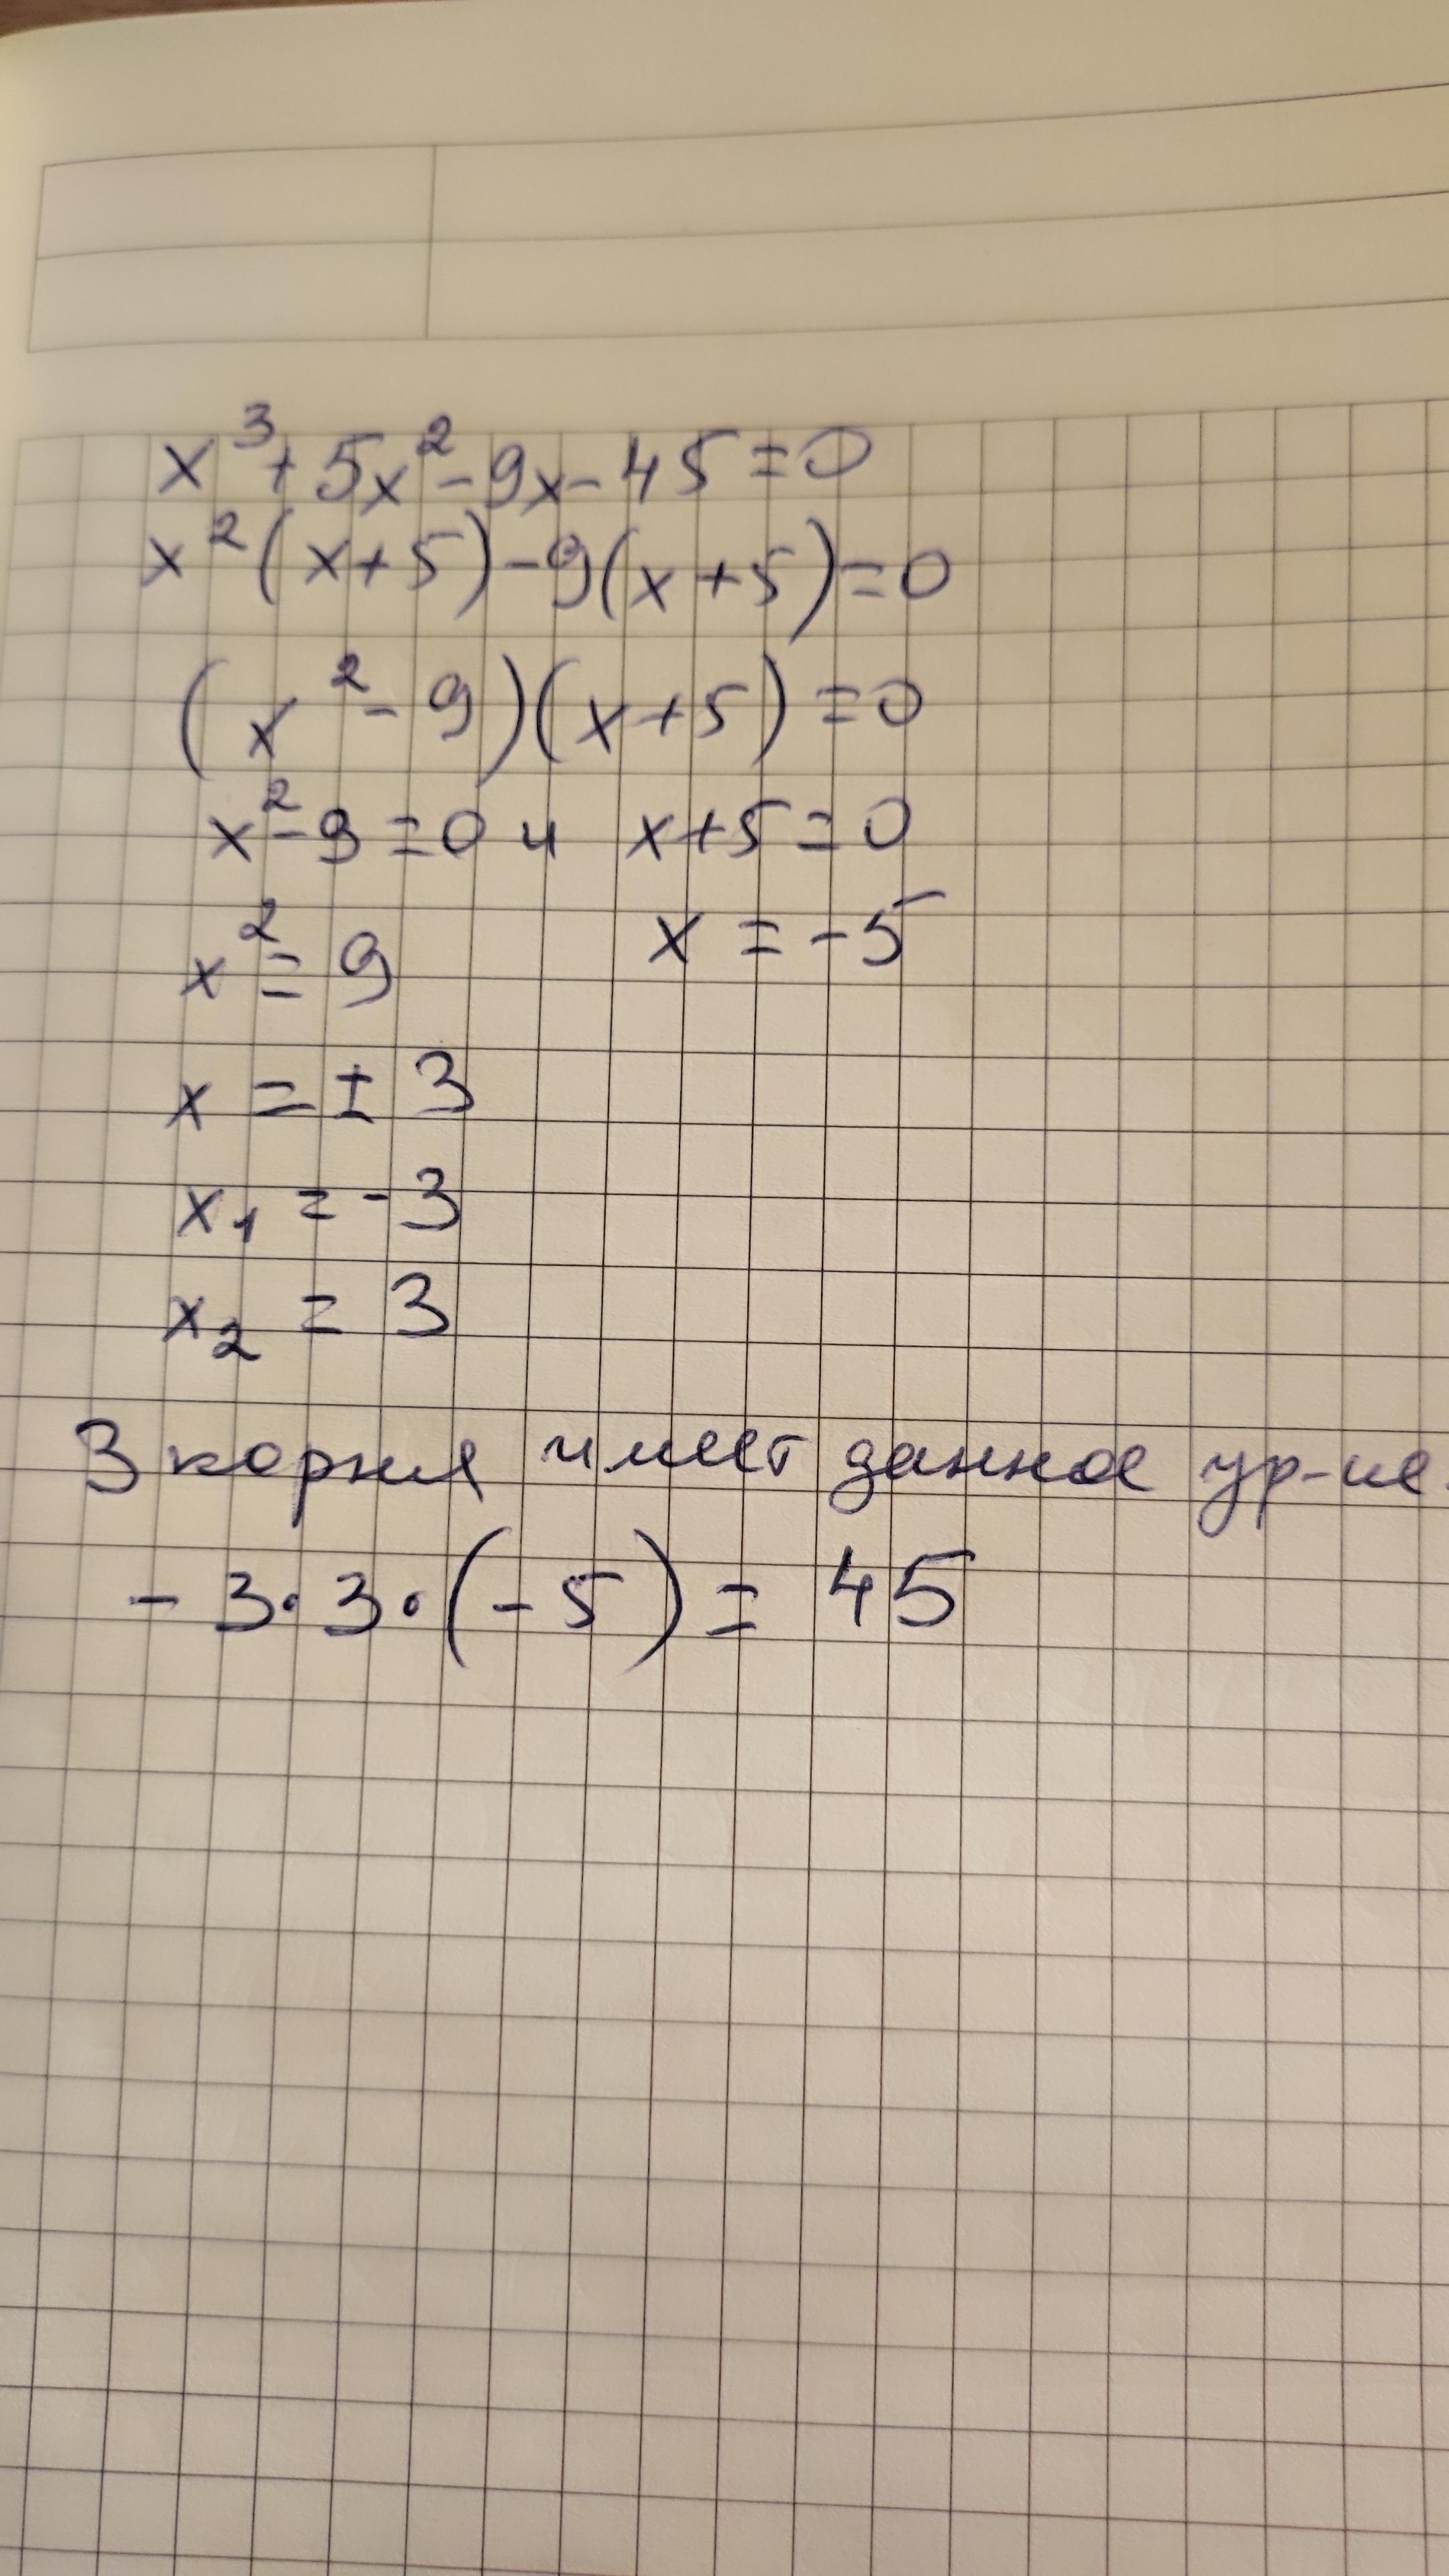 x³+5x²-9x-45=0
x²(x+5)-9(x+5)=0
(x²-9)(x+5)=0
x²-9=0 и x+5=0
x²=9 x=-5
x=±3
x₁=-3
x₂=3
3 корня имеет данное ур-ие.
-3·3·(-5)=45